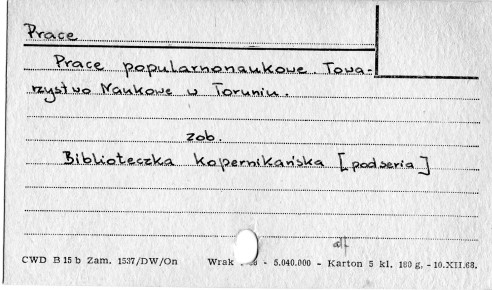 Prace
Prace popularnonaukowe. Towa-
rzystwo Naukowe w Toruniu.
zob.
Biblioteczka kopernikańska [podseria]
CWD B 15 b Zam. 1537/DW/On Wrak - 5.040.000 - Karton 5 kl. 180 g. - 10.XII.68.